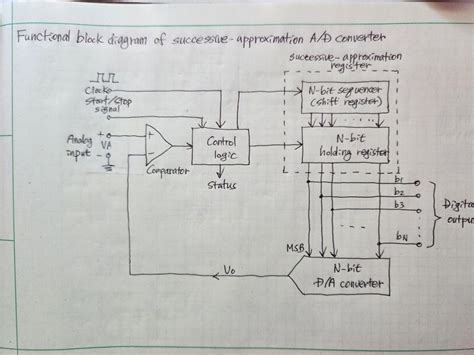 Functional block diagram of successive-approximation A/D converter
successive-approximation
register
Clock
start/stop
signal
N-bit sequencer
(shift register)
Analog
input
+
VA
-
+
-
Comparator
Control
logic
status
N-bit
holding register
b1
b2
b3
bN
Digital
output
MSB
Vo
N-bit
D/A converter